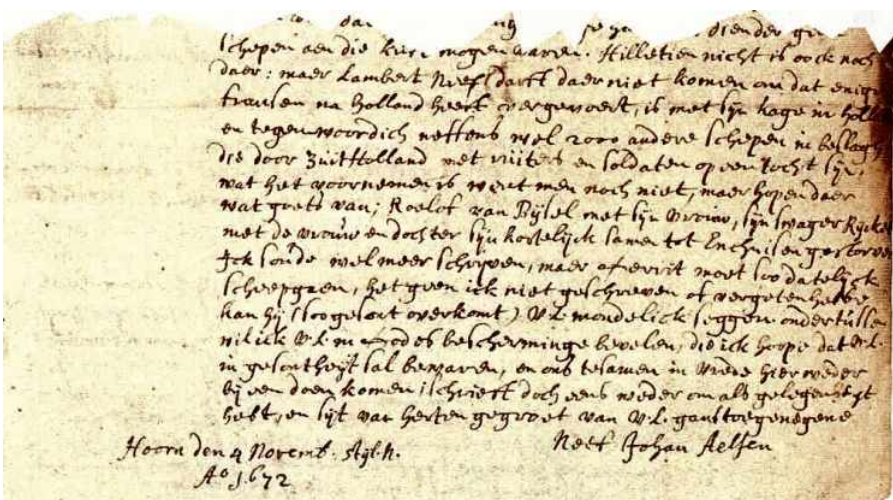 diender
schepen aen die mogen waren. Hilletien nicht is oock noch
daer: maer Lambert Neef darft daer niet komen om dat enige
fransen na Holland heeft overgevoert, is met sijn kage in
en tegenwoordich neffens wel 2000 andere schepen in beslagh
die door Zuit Holland met ruiters en soldaten op een tocht sijn,
wat het voornemen is weet men noch niet, maer hopen daer
wat goets van; Roelof van Bijsel met sijn vrouw, sijn swager
met de vrouw en dochter sijn kortelijck samen tot Enchusen gestorven
Ick soude wel meer schrijven, maer moet soo datelijck
scheep gaen, het geen ick niet geschreven of vergeten hebbe
kan hij (soo gesont overkomt) U.L. mondelick seggen ondertussen
wil ick U.L. in Godes bescherminge bevelen, die ick hoope dat U.L.
in gesontheijt sal bewaren, en ons tesamen in vrede hier weder
bij een doen komen; schrieft doch eens weder om als gelegenheijt
hebt, en sijt van herten gegroet van U.L. gans toegenegene
Neef Johan Aelsen
Hoorn den 4 Novemb. styl. N.
Ao 1672